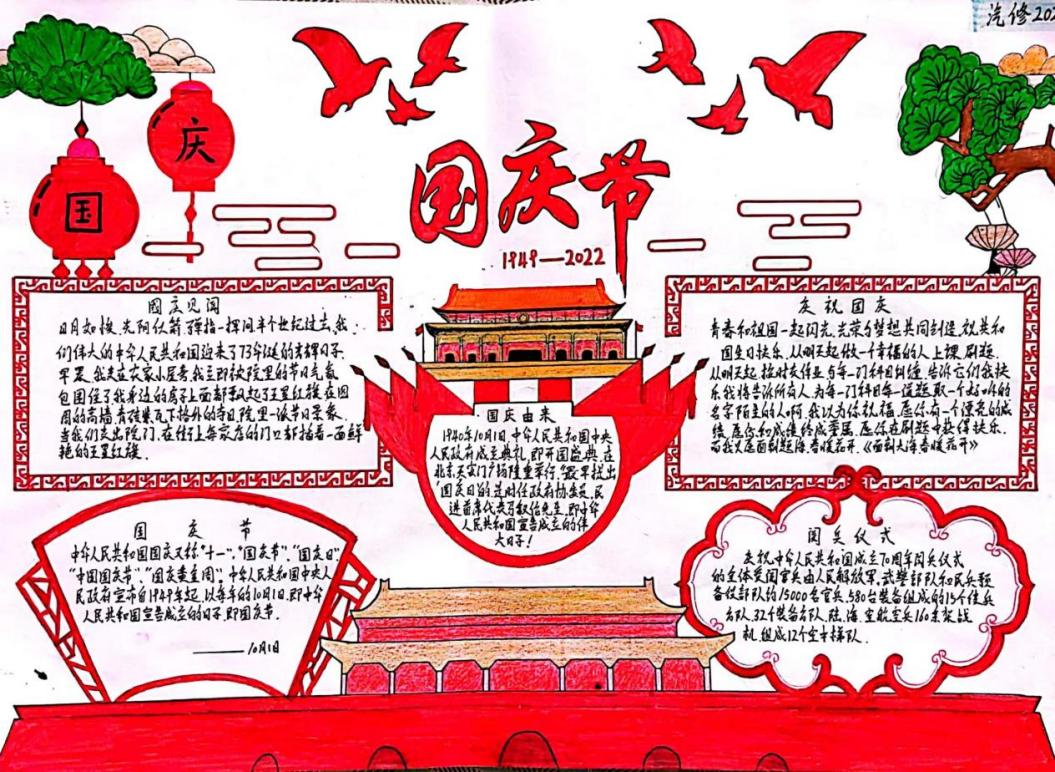 汽修202
庆
国
国庆节
1949—2022
国庆见闻
日月如梭,光阴似箭,弹指一挥间半个世纪过去,我
们伟大的中华人民共和国迎来了73华诞的光辉日子.
早晨,我走在农家小屋旁,我立即被院里的节日气氛
包围住了我身边的房子上面都飘起了五星红旗在四
周的高墙,青砖绿瓦下格外的夺目,院里一派节日景象.
当我们走出院门,在街上每家店的门口都插着一面鲜
艳的五星红旗.
庆祝国庆
青春和祖国一起闪光,光荣与梦想共同创造,祝共和
国生日快乐.从明天起做一个幸福的人上课,刷题.
从明天起,按时交作业与每一门科目纠缠,告诉它们我快
乐我将告诉所有人,为每一门科目每一道题取一个好听的
名字陌生的人啊,我以为你祝福,愿你有一个漂亮的成
绩,愿你和成绩终成眷属,愿你在刷题中获得快乐.
而我只愿面刷题海,春暖花开.《面朝大海春暖花开》
国庆由来
1940年10月1日,中华人民共和国中央
人民政府成立典礼,即开国盛典,在
北京天安门广场隆重举行,最早提出
国庆日的是时任政府协委员,民
进首席代表马叙伦先生,即中华
人民共和国宣告成立的伟
大日子!
国庆节
中华人民共和国国庆又称"十一","国庆节","国庆日"
"中国国庆节","国庆黄金周".中华人民共和国中央人
民政府宣布自1949年起,以每年的10月1日,即中华
人民共和国宣告成立的日子,即国庆节.
——10月1日
阅兵仪式
庆祝中华人民共和国成立70周年阅兵仪式
的主体受阅官兵由人民解放军,武警部队和民兵预
备役部队约15000名官兵,580台装备组成的15个徒步
方队,32个装备方队,陆,海,空航空兵160余架战
机,组成12个空中梯队.